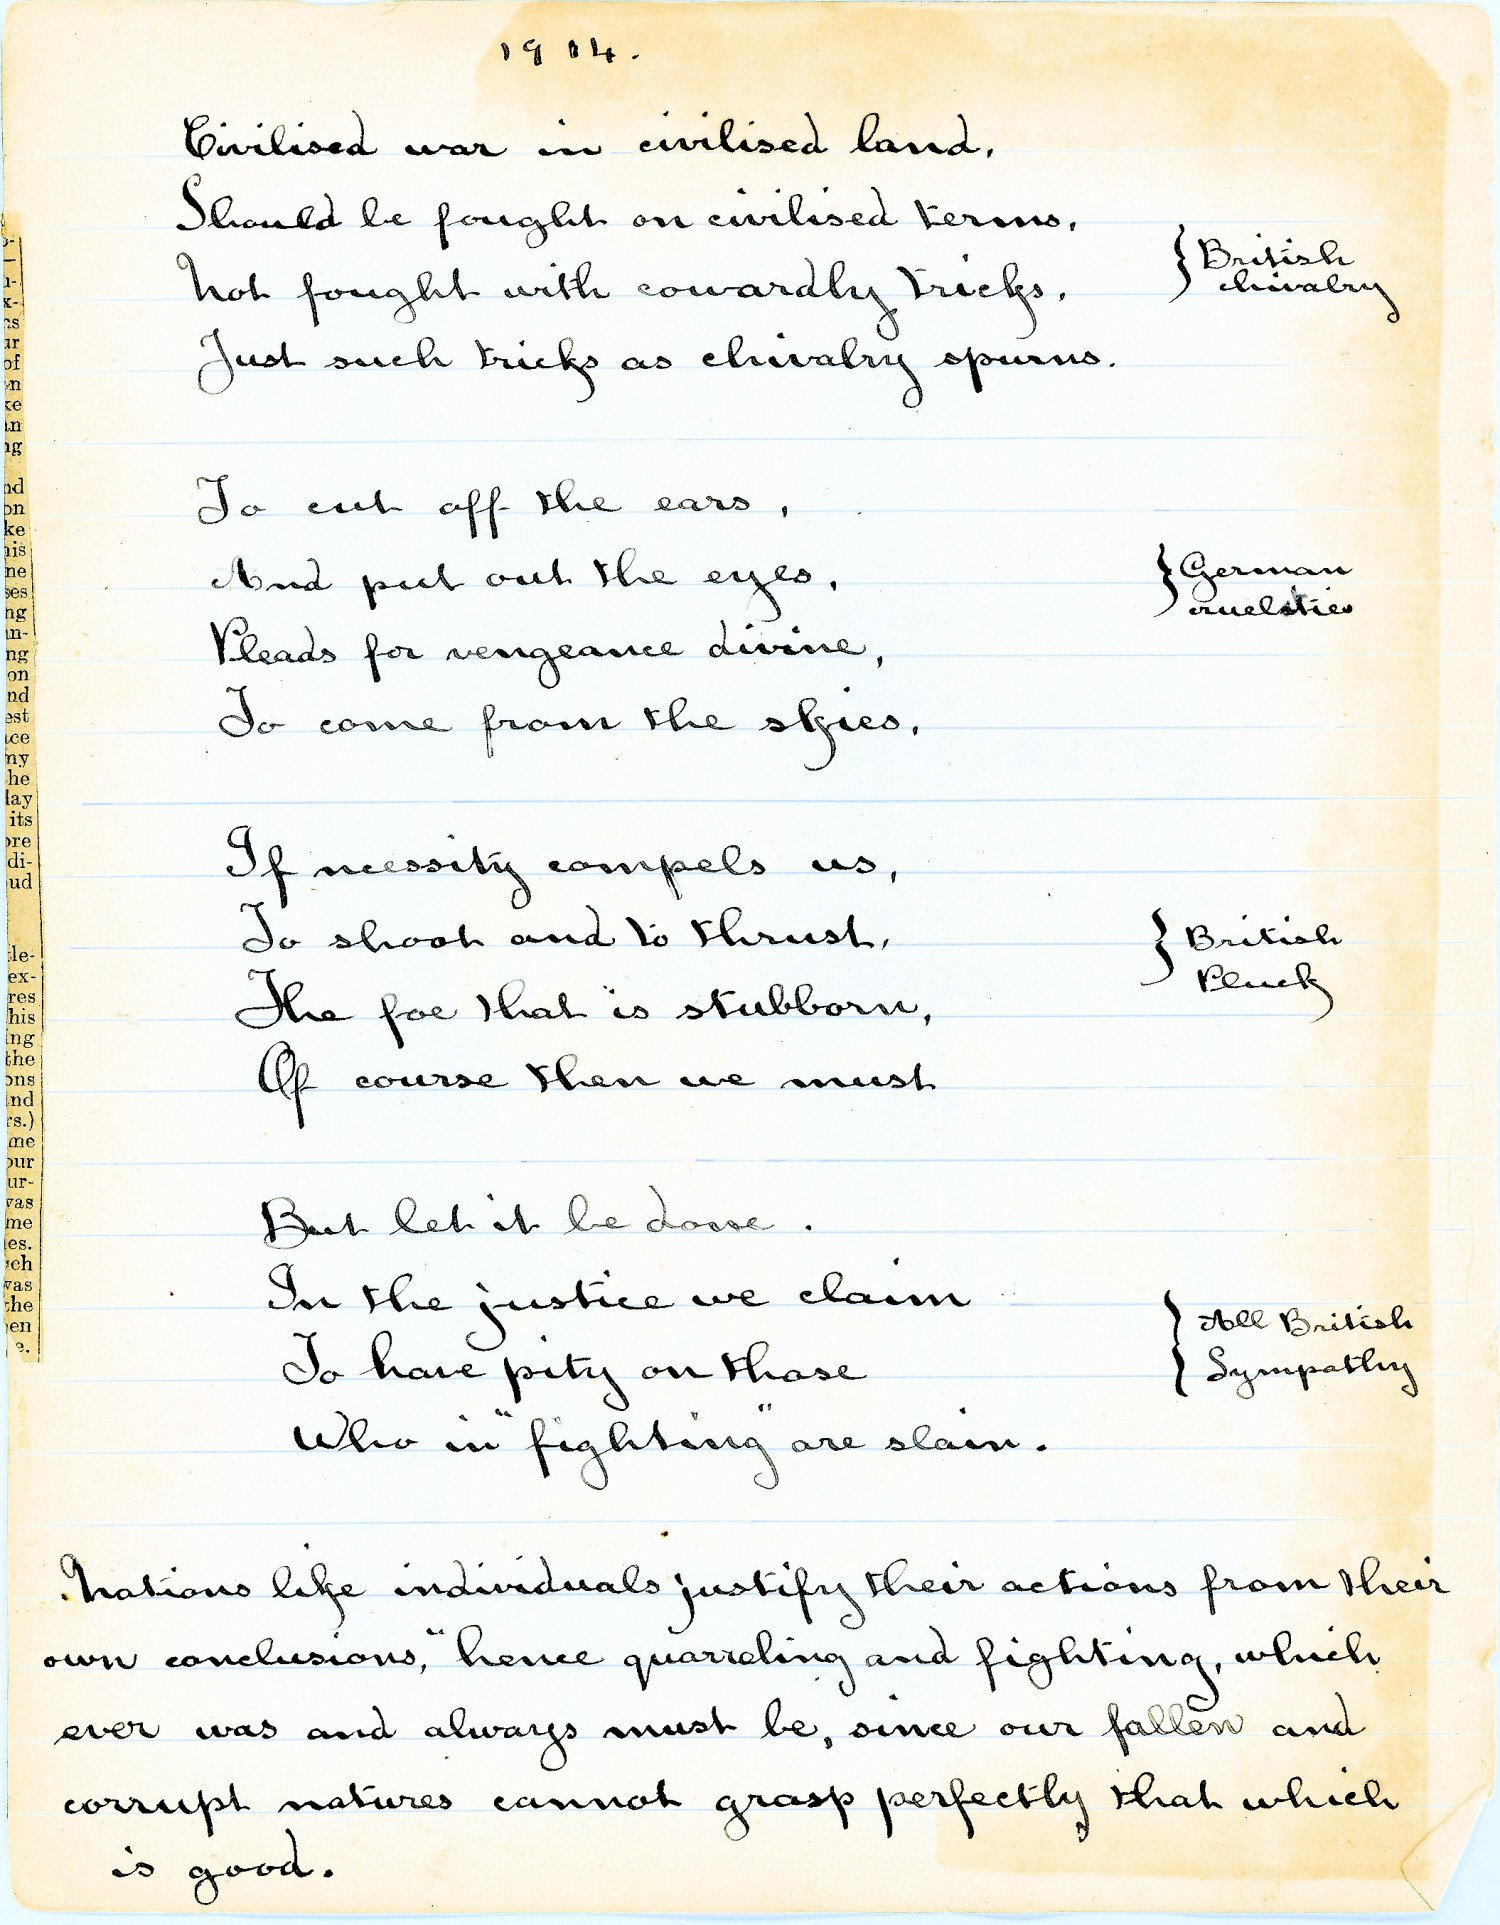 1914.
Civilised war in civilised land,
Should be fought on civilised terms,
Not fought with cowardly tricks,
Just such tricks as chivalry spurns.
} British
chivalry
To cut off the ears,
And put out the eyes,
Pleads for vengeance divine,
To come from the skies,
} German
cruelties
If necessity compels us,
To shoot and to thrust,
The foe that is stubborn,
Of course then we must
} British
Pluck
But let it be done.
In the justice we claim
To have pity on those
Who in "fighting" are slain.
} All British
Sympathy
Nations like individuals justify their actions from their
own conclusions," hence quarreling and fighting, which
ever was and always must be, since our fallen and
corrupt natures cannot grasp perfectly that which
is good.